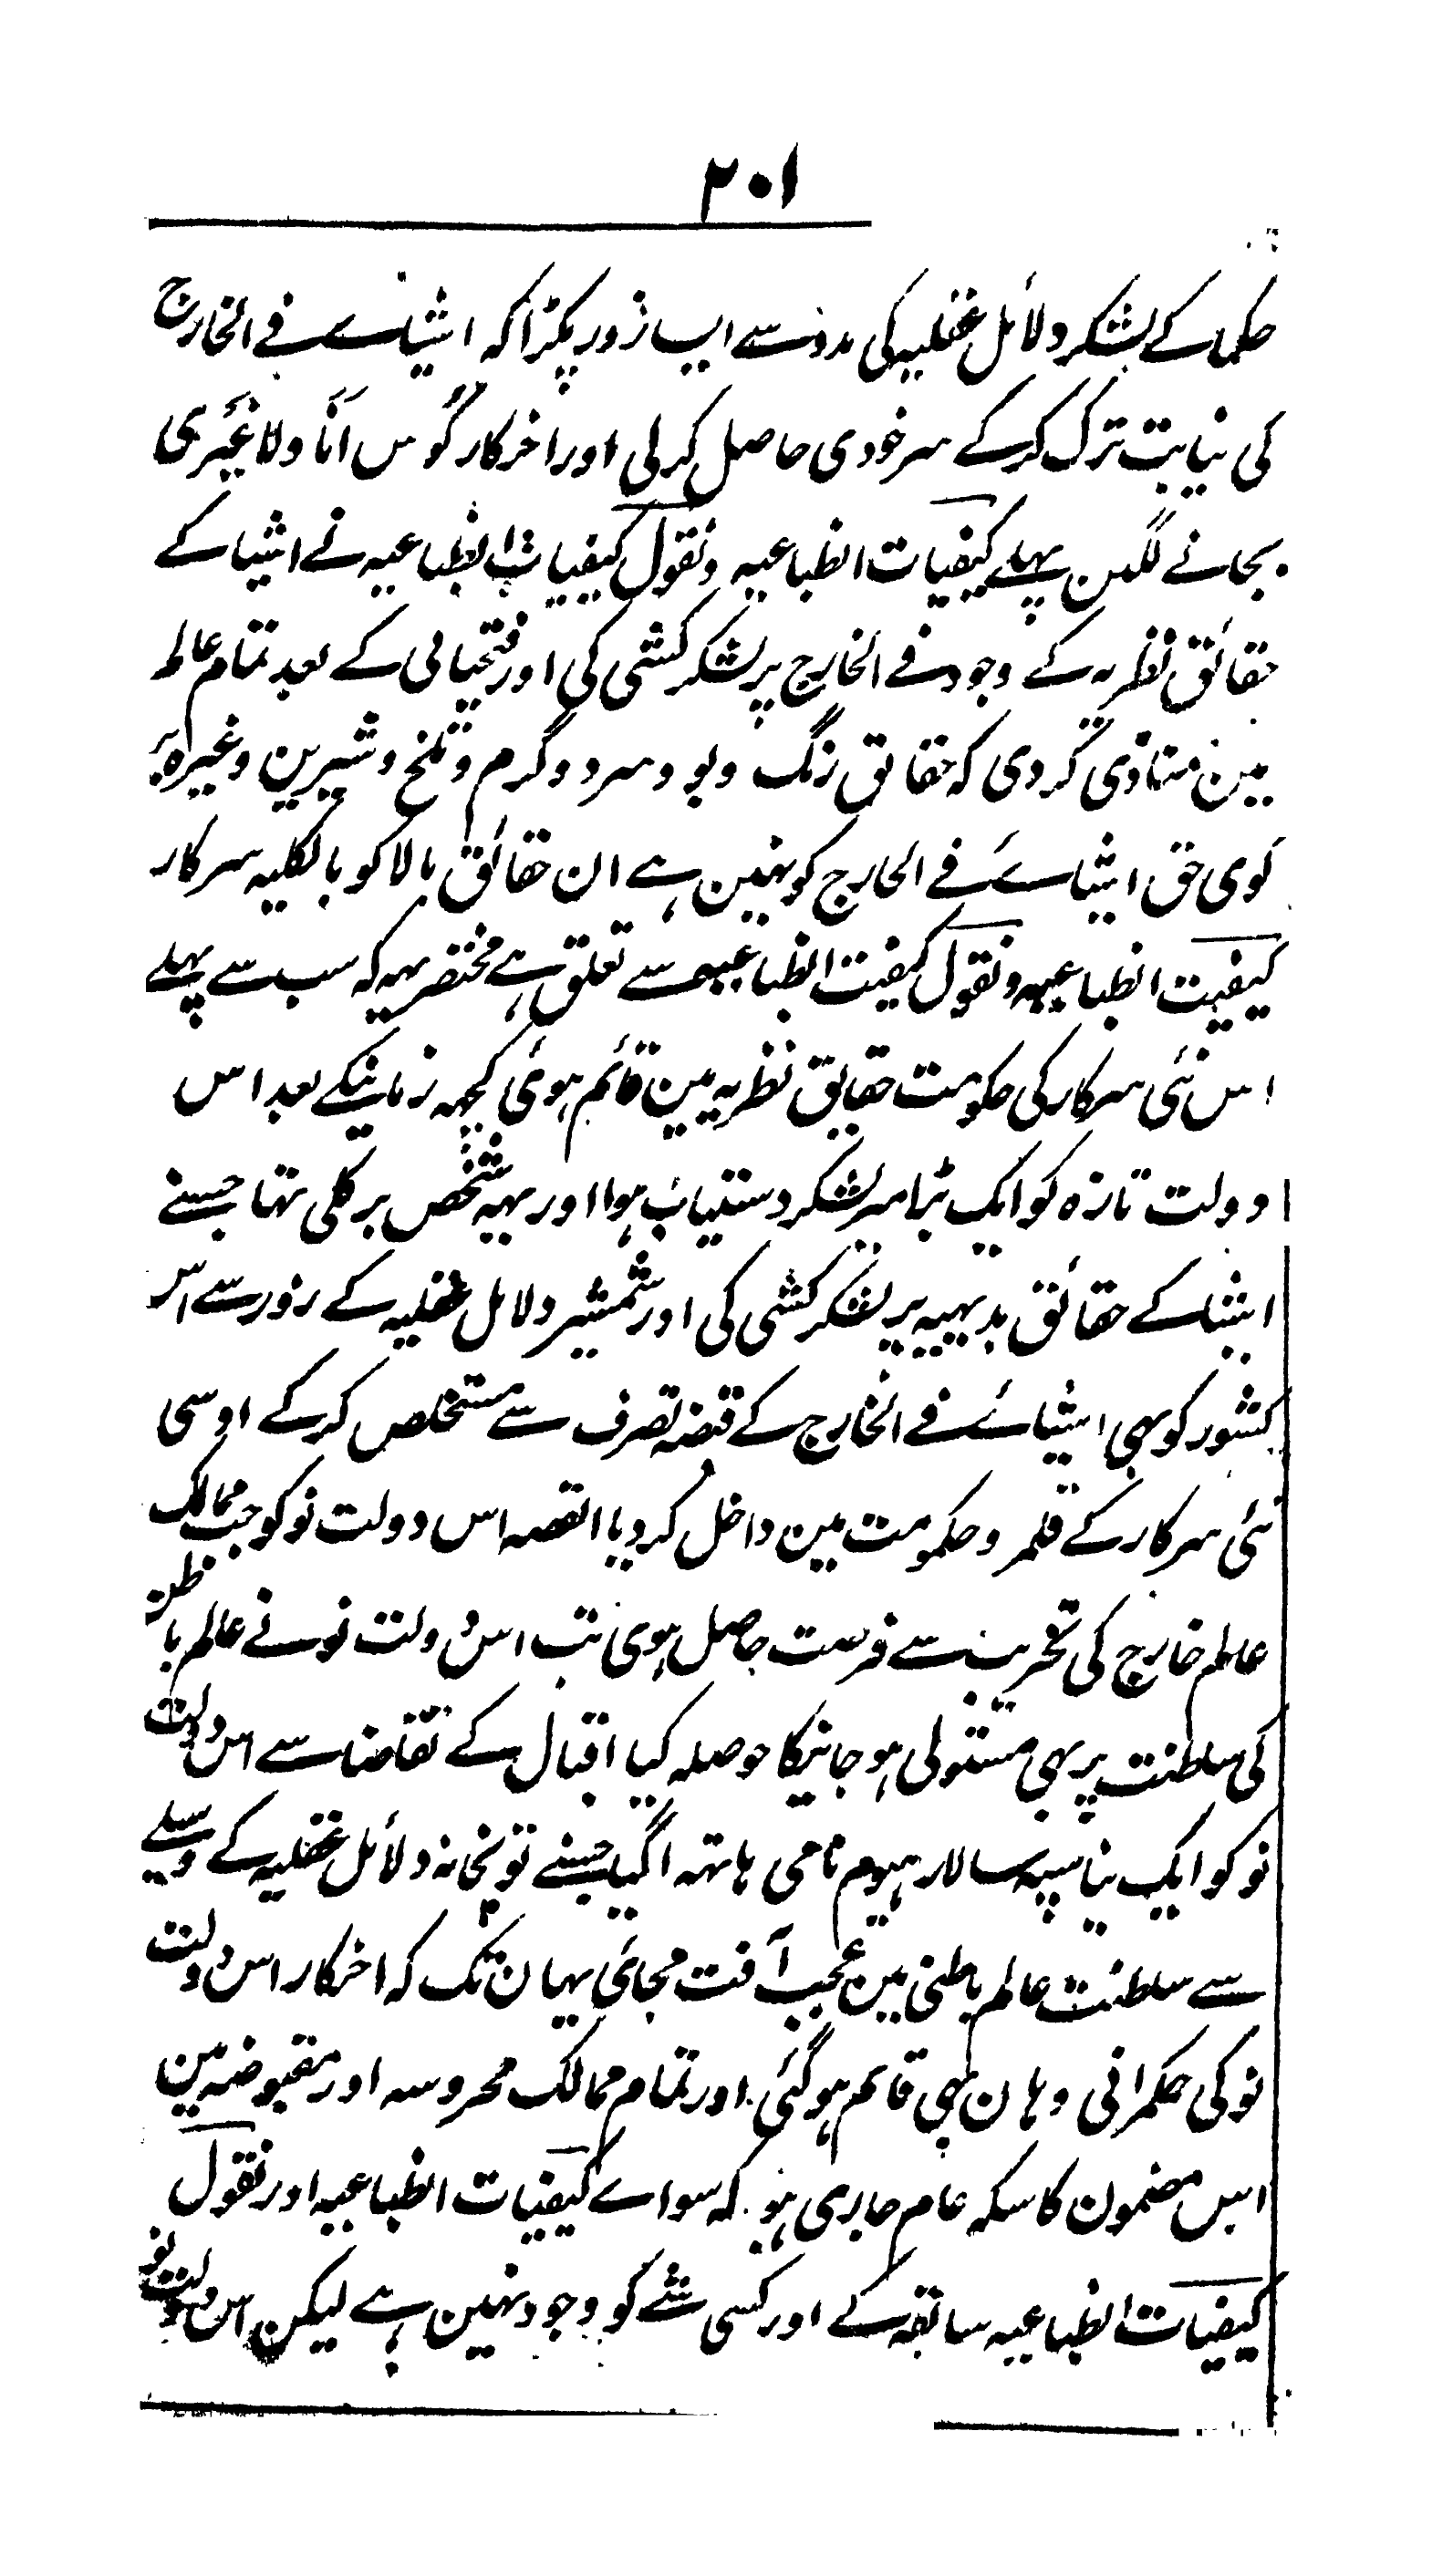 ۲۰۱
حکما کے لشکر دلائل عقلیہ کی مدد سے ایسا زور پکڑا کہ اشیاے فے الخارج
کی نیابت ترک کرکے سرخودی حاصل کرلی اور اخرکار کوس انا ولا غیری
بجانے لگین پہلے کیفیات انطباعیہ و نقول کیفیات انطباعیہ نے اشیا کے
حقائق نظریہ کے وجود فے الخارج پر لشکر کشی کی اور فتحیابی کے بعد تمام عالم
مین منادی کردی کہ حقائق رنگ و بو و سرد و گرم و تلخ و شیرین و غیرہ پر
کوی حق اشیاے فے الخارج کو نہین ہے ان حقائق بالا کو بالکلیہ سرکار
کیفیت انطباعیہ و نقول کیفیت انطباعیہ سے تعلق ہے مختصر یہہ کہ سب سے پہلے
اس نئی سرکار کی حکومت حقایق نظریہ مین قائم ہوئ کچہہ زمانیکے بعد اس
دولت تازہ کو ایک بڑا سر لشکر دستیاب ہوا اور یہہ شخص برکلی تہا جسنے
اشیا کے حقائق بدیہیہ پر لشکر کشی کی اور شمشیر دلائل عقلیہ کے زور سے اس
کشور کو بہی اشیائے فے الخارج کے قبضہ تصرف سے مستخلص کرکے اوسی
نئی سرکار کے قلمرو حکومت مین داخل کردیا القصہ اس دولت نو کو جب ممالک
عالم خارج کی تخریب سے فرصت حاصل ہوی تب اس دولت نو نے عالم باطن
کی سلطنت پر بہی مستولی ہو جانیکا حوصلہ کیا اقبال کے تقاضا سے اس دولت
نو کو ایک نیا سپہ سالار ہیوم نامی ہاتہہ اگیا جسنے توپخانہ دلائل عقلیہ کے وسیلے
سے سلطنت عالم باطنی مین عجب آفت مچائ یہان تک کہ اخرکار اس دولت
نو کی حکمرانی وہان بہی قائم ہوگئی اور تمام ممالک محروسہ اور مقبوضہ مین
اس مضمون کا سکہ عام جاری ہو کہ سواے کیفیات انطباعیہ اور نقول
کیفیات انطباعیہ سابقہ کے اور کسی شے کو وجود نہین ہے لیکن اس دولت نو